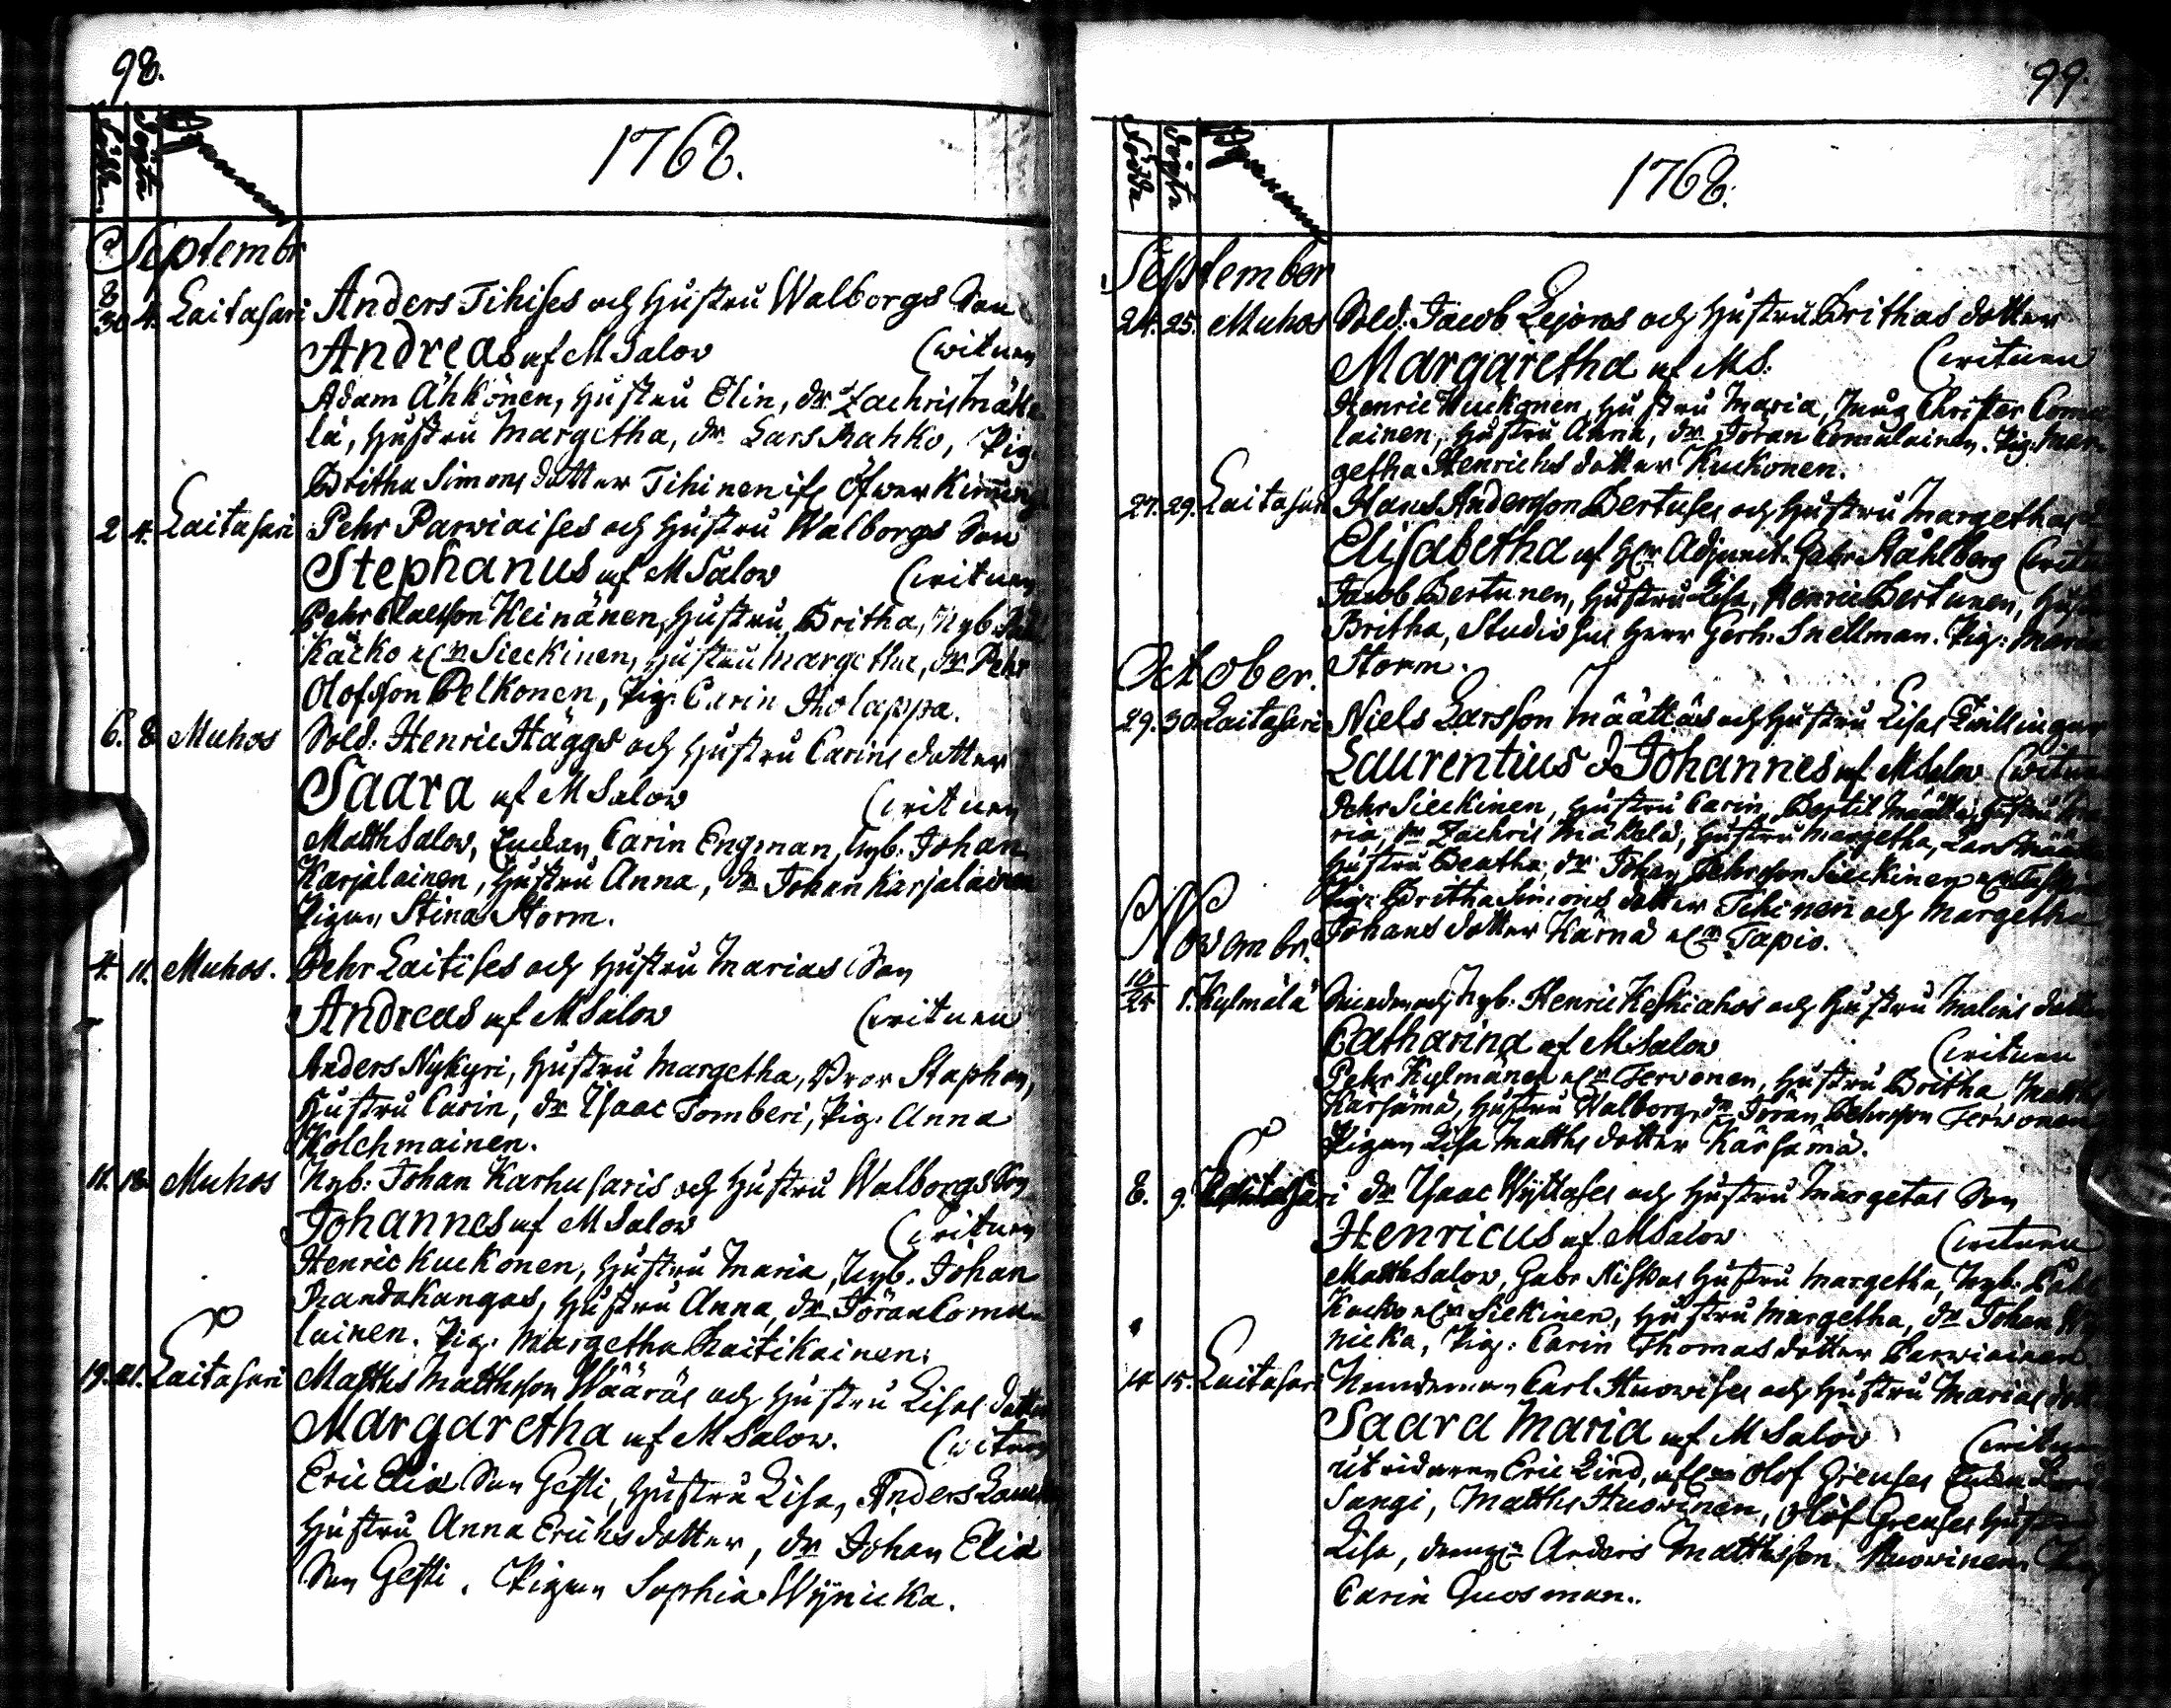 98.
Födde
Döpte
Byarnam
1768.
Septembr
8/30 4. Laitasari Anders Tihises och Hustru Walborgs Son
Andreas af M Salov (wittnen
Adam Ähkönen, Hustru Elin, dr. Zachris Mäke
lä, Hustru Margetha, dr. Lars Rahko, Pig.
Britha Simons dotter Tihinen ifr. Öfwer Kiming
2 4. Laitasari Pehr Parwiaises och Hustru Walborgs Son
Stephanus af M Salov (wittnen
Pehr Claesson Heinänen, Hustru Britha, Nyb.
Kacko Sieckinen, Hustru Margetha, dr. Pehr
Olofsson Pelkonen, Pig. Carin Holappa.
6. 8 Muhos Sold: Henric Häggs och Hustru Carins dotter
Saara af M Salov (wittnen
Matth Salov, Enckan Carin Engman, Nyb. Johan
Karjalainen, Hustru Anna, dr. Johan Karjalainen
Pigan Stina Storm.
4. 11. Muhos. Pehr Laitises och Hustru Marias Son
Andreas af M Salov (wittnen
Anders Nykyri, Hustru Margetha, Bror Staphan,
Hustru Carin, dr. Isaac Tomberi, Pig. Anna
Kolehmainen.
11. 18. Muhos Nyb: Johan Karhusaris och Hustru Walborgs Son
Johannes af M Salov (wittnen
Henric Kuckonen, Hustru Maria, Nyb. Johan
Randakangas, Hustru Anna, dr. Jöran Comu-
lainen. Pig. Margetha Raitikainen.
19. 21. Laitasari Matths Matthsson Wääräs och Hustru Lisas dotter
Margaretha af M Salov. (wittnen
Eric Elia Son Gesti, Hustru Lisa, Anders
Hustru Anna Erichs dotter, dr. Johan Elia
Son Gesti. Pigan Sophia Wÿnicka.
99.
Födde
Döpte
Byarnam
1768.
September
24. 25. Muhos Sold: Jacob Lejons och Hustru Brithas dotter
Margaretha af MS. (wittnen
Henric Kuckonen, Hustru Maria, Christer Comu
lainen, Hustru Anna, dr. Jöran Comulainen. Pig. Mar-
getha Henrichs dotter Kuckonen.
27. 29. Laitasari Hans Andersson Bertuses och Hustru Margethas
Elisabetha af Hr. Adjunct. Gabr. Ståhlberg (wittn
Jacob Bertunen, Hustru Lisa, Henric Bertunen, Hustru
Britha, Studiosus Herr Gerh: Snellman. Pig: Maria
Storm.
October.
29. 30. Laitasari Niels Larsson Määttäs och Hustru Lisas Twillingar
Laurentius & Johannes af M Salov (wittnen
Pehr Sieckinen, Hustru Carin, Bertil Määttä, Hustru Ma
ria, dr. Zachris Mäkelä, Hustru Margetha, Lars Määttä
Hustru Beatha, dr. Johan Pehrsson Sieckinen
Pig. Britha Simons dotter Tihinen och Margetha
Johans dotter Kärnä Tapio.
Novembr.
10/24 1. Kylmälä och Nyb: Henric Keskiahos och Hustru Malins dotter
Catharina af M Salov (wittnen
Pehr Kylmänen Tervonen, Hustru Britha, Matths
Karsämä, Hustru Walborg, dr. Jöran Pehrsson Terwonen
Pigan Lisa Matths dotter Karsämä.
8. 9. Laitasari dr. Isaac Wÿttases och Hustru Margetas Son
Henricus af M Salov (wittnen
Matth Salov, Gabr Niskas Hustru Margetha, Nyb. Pehr
Kacko Siekinen, Hustru Margetha, dr. Johan Wÿ
nicka, Pig: Carin Thomas dotter Parwiainen.
14 15. Laitasari Nemdeman Carl Huowises och Hustru Marias dott
Saara Maria af M Salov (wittnen
Utridaren Eric Lind, Olof Grenses
Sangi, Matths Huowinen, Olof Grenses Hustru
Lisa, drengen Anders Matthsson Huowinen
Carin Quosman.